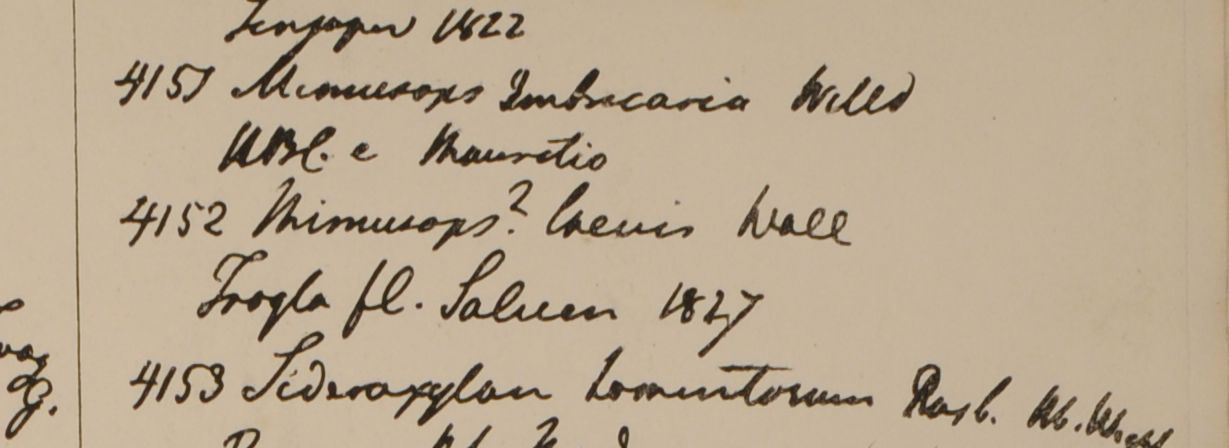 Singapur 1822
4151 Mimusops Imbricaria Willd
HBC. e Mauritio
4152 Mimusops? laevis Wall
Trogla fl. Saluen 1827
4153 Sideroxylon tomentosum Roxb. Hb. Wight